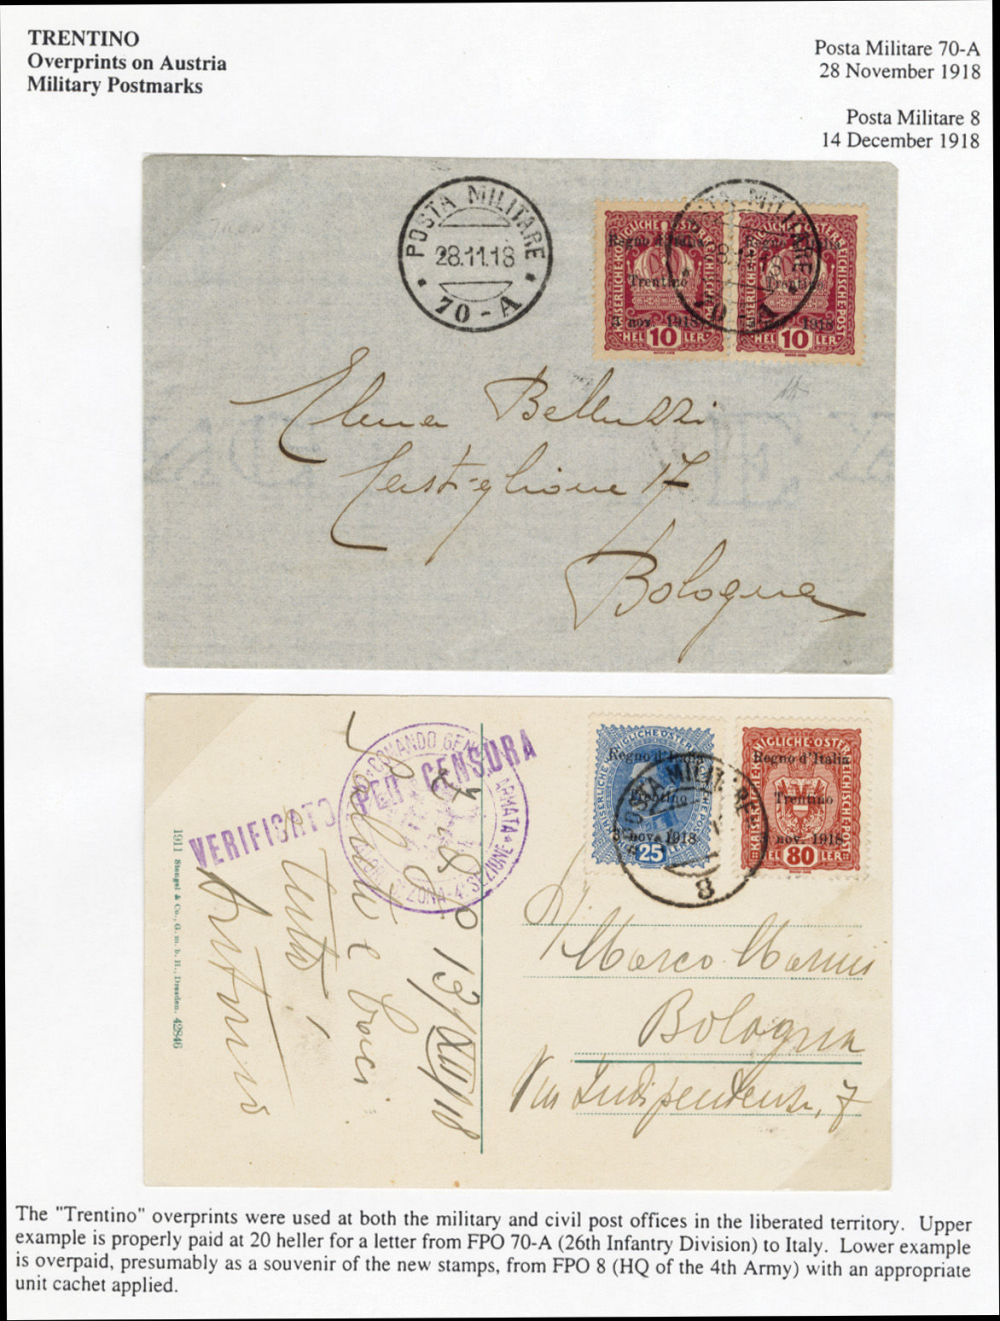 TRENTINO
Overprints on Austria
Military Postmarks
Posta Militare 70-A
28 November 1918
Posta Militare 8
14 December 1918
POSTA MILITARE
28.11.18
70-A
KAISERLICHE KÖNIGLICHE ÖSTERREICHISCHE POST
Regno d'Italia
Trentino
3 nov. 1918
HELLER 10
KAISERLICHE KÖNIGLICHE ÖSTERREICHISCHE POST
Regno d'Italia
Trentino
1918
HELLER 10
POSTA MILITARE
70-A
Elena Belluzzi
Castiglione 17
Bologna
VERIFICATO PER CENSURA
COMANDO GEN ARMATA
ZONA-4ª SEZIONE
Saluti e baci
tanti!
Arturo
13/XII/18
1911 Stengel & Co., G. m. b. H., Dresden. 42846
Regno d'Italia
Trentino
3 nov. 1918
25
POSTA MILITARE
8
KAISERLICHE KÖNIGLICHE ÖSTERREICHISCHE POST
Regno d'Italia
Trentino
3 nov. 1918
HELLER 80
Marco
Bologna
Via Indipendenza, 7
The "Trentino" overprints were used at both the military and civil post offices in the liberated territory. Upper
example is properly paid at 20 heller for a letter from FPO 70-A (26th Infantry Division) to Italy. Lower example
is overpaid, presumably as a souvenir of the new stamps, from FPO 8 (HQ of the 4th Army) with an appropriate
unit cachet applied.